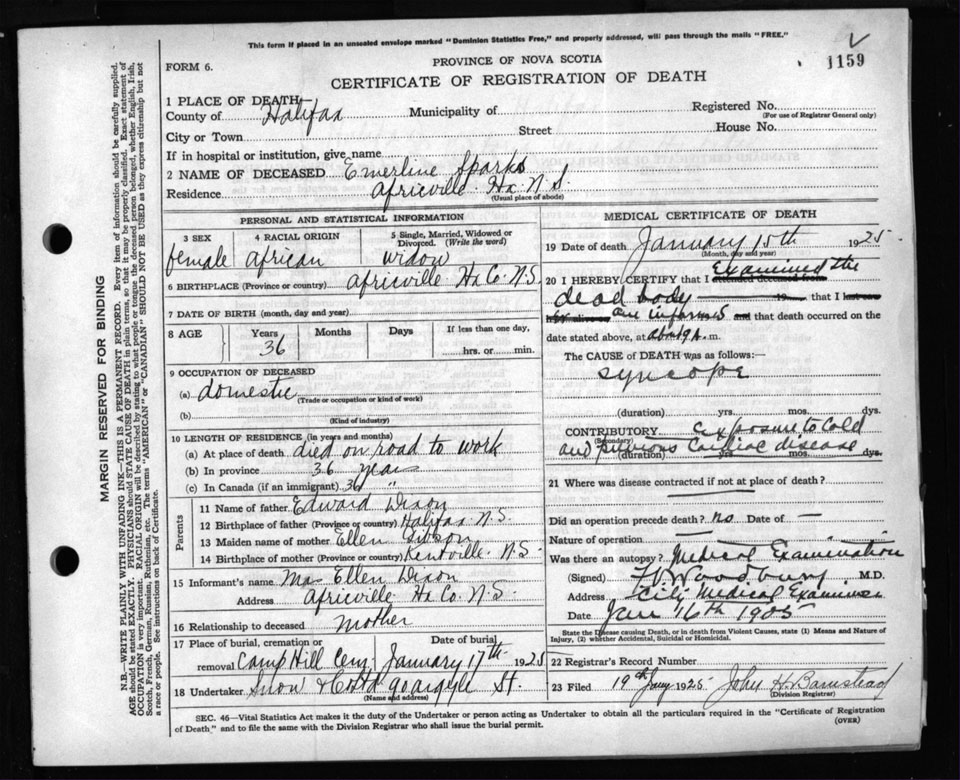 This form if placed in an unsealed envelope marked "Dominion Statistics Free," and properly addressed, will pass through the mails "FREE."
FORM 6.
PROVINCE OF NOVA SCOTIA
1159
CERTIFICATE OF REGISTRATION OF DEATH
MARGIN RESERVED FOR BINDING
N.B.—WRITE PLAINLY WITH UNFADING INK—THIS IS A PERMANENT RECORD. Every item of information should be carefully supplied.
AGE should be stated EXACTLY. PHYSICIANS should STATE CAUSE OF DEATH in plain terms, so that it may be properly classified. Exact statement of
OCCUPATION is very important. RACIAL ORIGIN will be described by stating to what people or tongue the deceased person belonged, whether English, Irish,
Scotch, French, German, Russian, Ruthenian, etc. The terms "AMERICAN" or "CANADIAN" SHOULD NOT BE USED as they express citizenship but not
a race or people. See instructions on back of Certificate.
1 PLACE OF DEATH
County of Halifax Municipality of Registered No.
(For use of Registrar General only)
City or Town Street House No.
If in hospital or institution, give name
2 NAME OF DECEASED Emerline Sparks
Residence Africville Hx. N.S.
(Usual place of abode)
PERSONAL AND STATISTICAL INFORMATION
3 SEX 4 RACIAL ORIGIN 5 Single, Married, Widowed or
Divorced. (Write the word)
female African widow
6 BIRTHPLACE (Province or country) Africville Hx Co. N.S.
7 DATE OF BIRTH (month, day and year)
8 AGE Years Months Days If less than one day,
36 hrs. or min.
9 OCCUPATION OF DECEASED
(a) domestic
(Trade or occupation or kind of work)
(b)
(Kind of industry)
10 LENGTH OF RESIDENCE (in years and months)
(a) At place of death died on road to work
(b) In province 36 years
(c) In Canada (if an immigrant) 36 "
Parents
11 Name of father Edward Dixon
12 Birthplace of father (Province or country) Halifax N.S.
13 Maiden name of mother Ellen
14 Birthplace of mother (Province or country) Kentville N.S.
15 Informant's name Mrs Ellen Dixon
Address Africville Hx Co. N.S.
16 Relationship to deceased mother
17 Place of burial, cremation or Date of burial
removal Camp Hill Cem January 17th 1925
18 Undertaker Snow & 90 Argyle St.
(Name and address)
MEDICAL CERTIFICATE OF DEATH
19 Date of death January 15th 1925
(Month, day and year)
20 I HEREBY CERTIFY that I attended deceased from Examined the
dead body 19 that I last saw
alive on am informed and that death occurred on
date stated above, at about 9 A. m.
The CAUSE OF DEATH was as follows:
syncope
(duration) yrs. mos. dys.
CONTRIBUTORY exposure to cold
(Secondary)
and previous cardiac disease
(duration) yrs. mos. dys.
21 Where was disease contracted if not at place of death?
Did an operation precede death? no Date of —
Nature of operation —
Was there an autopsy? Medical Examination
(Signed) Woodbury M.D.
Address City Medical Examiner
Date Jan 16th 1905
State the Disease causing Death, or in death from Violent Causes, state (1) Means and Nature of
Injury, (2) whether Accidental, Suicidal or Homicidal.
22 Registrar's Record Number
23 Filed 19th Jany 1925 John H. Barnstead
(Division Registrar)
SEC. 46—Vital Statistics Act makes it the duty of the Undertaker or person acting as Undertaker to obtain all the particulars required in the "Certificate of Registration
of Death," and to file the same with the Division Registrar who shall issue the burial permit.
(OVER)